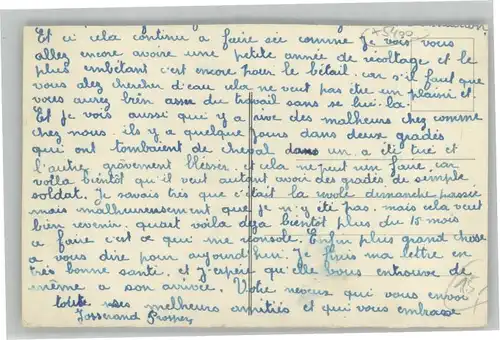 Et ci cela continue a faire sec comme je vois vous
allez encore avoire une petite année de récoltage et le
plus embêtant c'est encore pour le bétail. car s'il faut que
vous alez chercher d'eau cela ne veut pas être un plaisir et
vous aurez bien assez du travail sans se lui-la
Et je vois aussi qui y a des malheurs chez comme
chez nous. ils y a quelque jours dans deux gradés
qui ont tombaient de cheval dans un a été tué et
l'autre gravement blessés. et cela ne peut rien faire car
voila bientôt qu'il veut autant avoir des gradés de simple
soldat. Je savais très que c'était la vote dimanche passée
mais malheureusement que je n'y été pas. mais cela veut
bien revenir. quart voila deja bientôt plus du 15 mois
a faire c'est ce qui me console. Enfin plus grand chose
a vous dire pour aujourd'hui. Je finis ma lettre en
très bonne santé. et j'espere qu'elle vous entrouve de
même a son arrivée. Votre neveux qui vous envoi
toute ses meilheurs amitiés et qui vous embrasse
Josserand Prosper